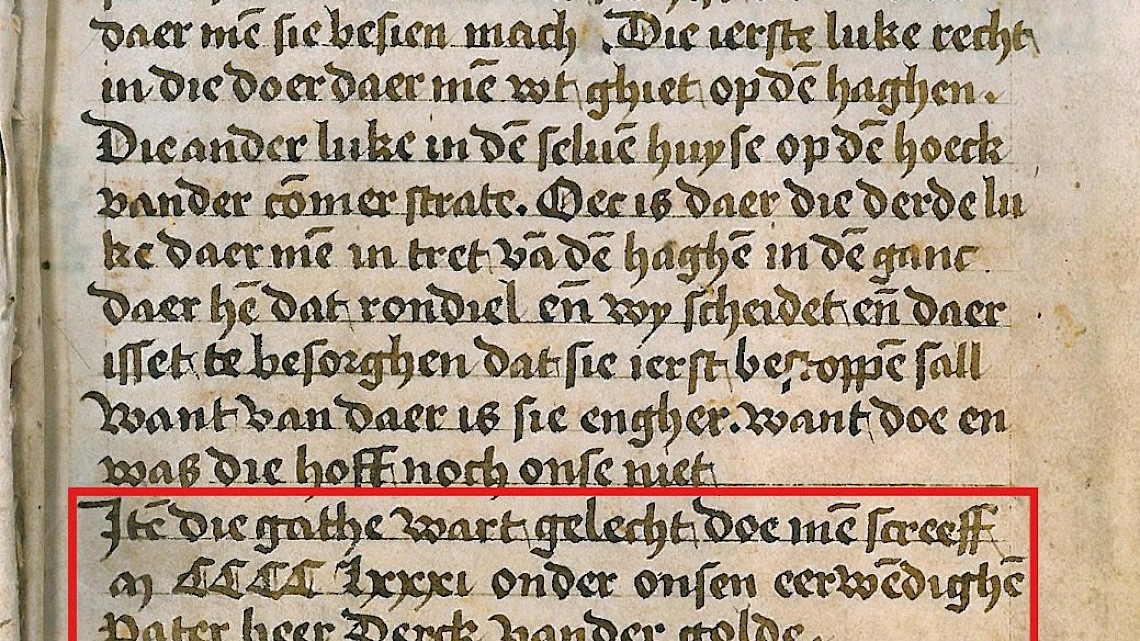 daer mē sie besien mach . Die ierste luke recht
in die doer daer mē wt ghiet op dē haghen .
Die ander luke in dē seluē huyse op dē hoeck
vander cōmer strate . Oec is daer die derde lu
ke daer mē in tret vā dē haghē in dē ganc
daer hē dat rondiel eñ wy scheidet eñ daer
isset te besorghen dat sie ierst bestoppē sall
Want van daer is sie engher . want doe en
was die hoff noch onse niet
Itē die gathe wart gelecht doe mē screeff
m CCCC lxxxi onder onsen eerwēdighē
Pater heer Derck vander golde .